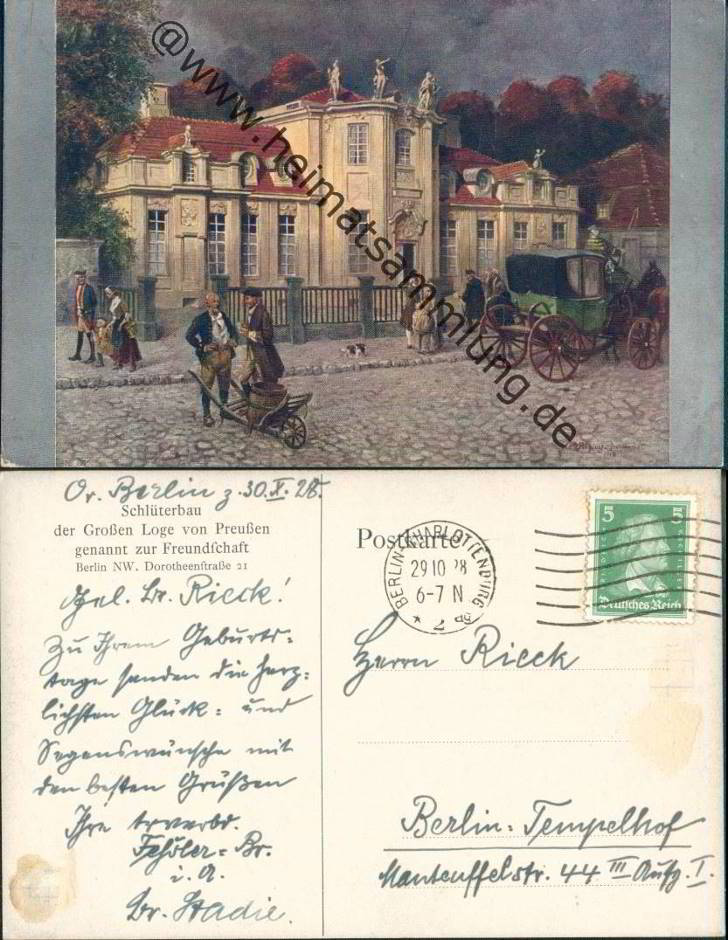 @www.heimatsammlung.de
Or. Berlin z. 30.X.28.
Schlüterbau
der Großen Loge von Preußen
genannt zur Freundſchaft
Berlin NW. Dorotheenſtraße 21
Gel. Br. Rieck!
Zu Ihrem Geburts-
tage senden die herz-
lichsten Glück- und
Segenswünsche mit
den besten Grüßen
Ihre
Feßler-Br.
i. A.
Br. Stadie.
Postkarte
BERLIN-CHARLOTTENBURG
29 10 28
6-7 N
* 2
5 5
Deutsches Reich
Herrn Rieck
Berlin-Tempelhof
Manteuffelstr. 44 III Aufg. I.